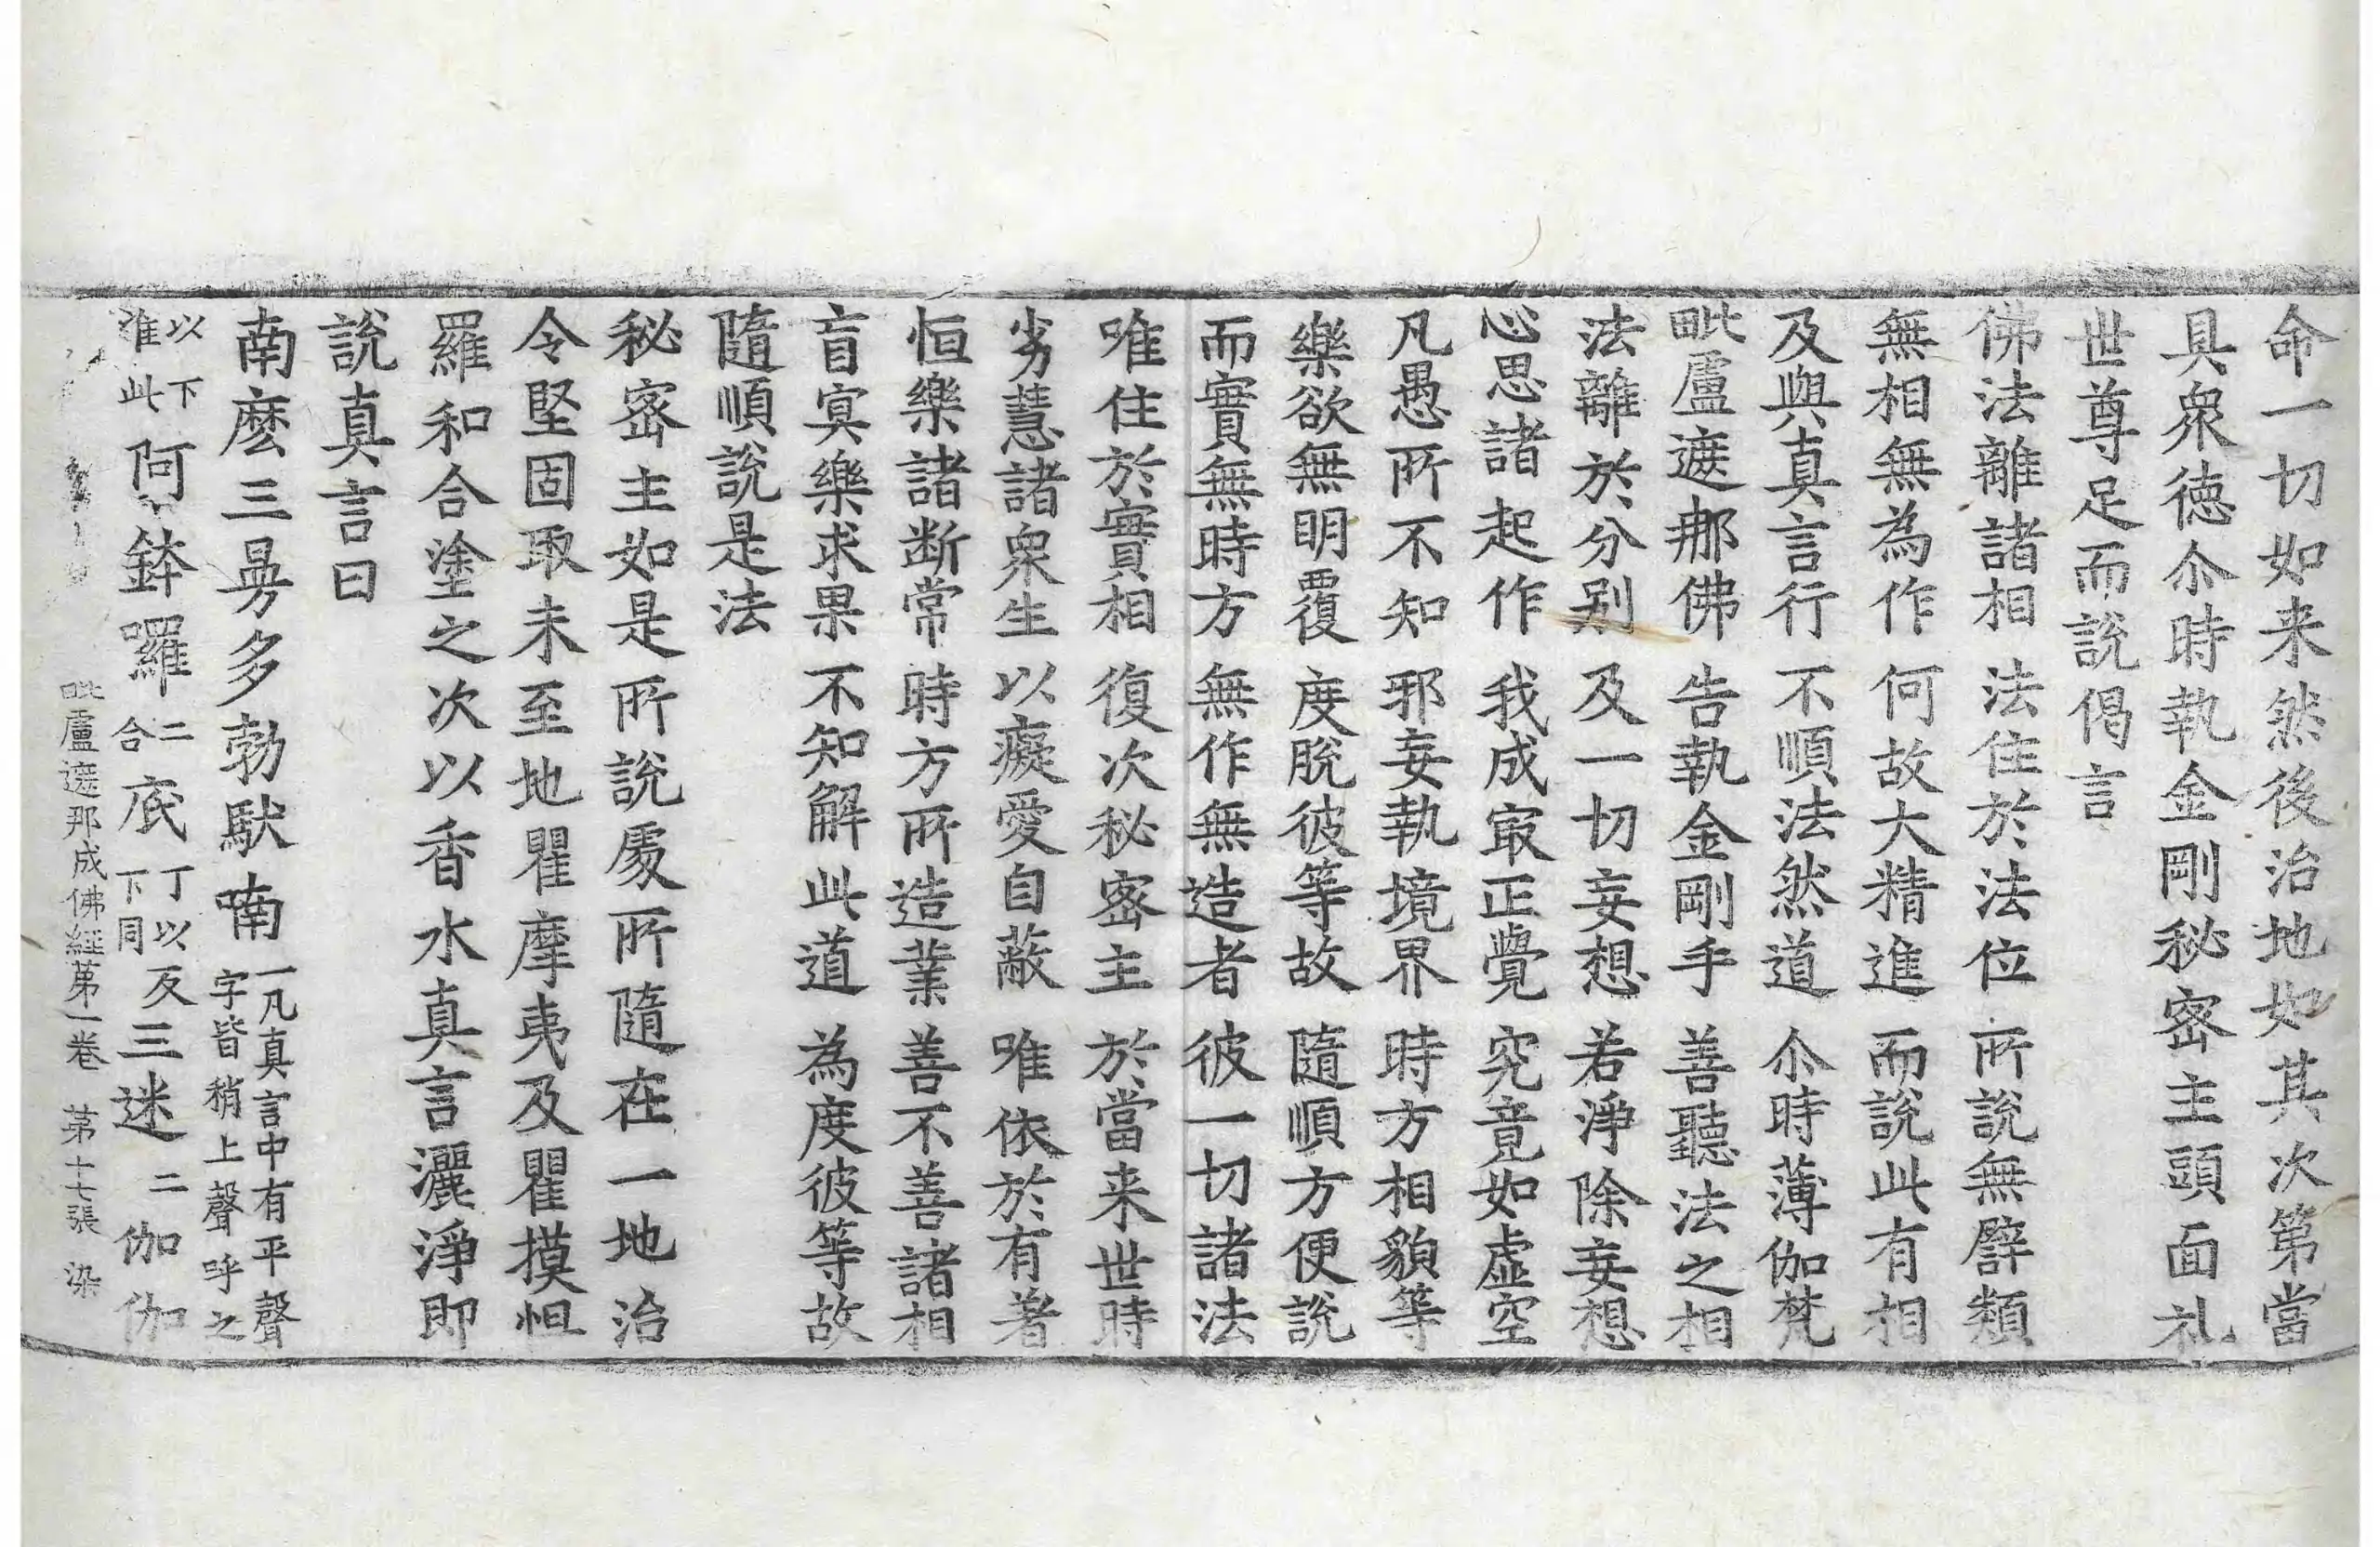 命一切如来然後治地如其次第當
具衆徳尒時執金剛秘密主頭面礼
世尊足而說偈言
佛法離諸相 法住於法位 所說無譬類
無相無為作 何故大精進 而說此有相
及與真言行 不順法然道 尒時薄伽梵
毗盧遮那佛 告執金剛手 善聽法之相
法離於分别 及一切妄想 若淨除妄想
心思諸起作 我成冣正覺 究竟如虛空
凡愚所不知 邪妄執境界 時方相貌等
樂欲無明覆 度脫彼等故 隨順方便說
而實無時方 無作無造者 彼一切諸法
唯住於實相 復次秘密主 於當来世時
劣慧諸衆生 以癡愛自蔽 唯依於有著
恒樂諸断常 時方所造業 善不善諸相
盲冥樂求果 不知解此道 為度彼等故
隨順說是法
秘密主如是所說處所隨在一地治
令堅固取未至地瞿摩夷及瞿摸怛
羅和合塗之次以香水真言灑淨即
說真言曰
南麼三曼多勃馱喃一凡真言中有平聲字皆稍上聲呼之
以下准此阿鉢囉二合底丁以反下同三迷二伽伽
毗盧遮那成佛經苐一卷 苐十七張 染